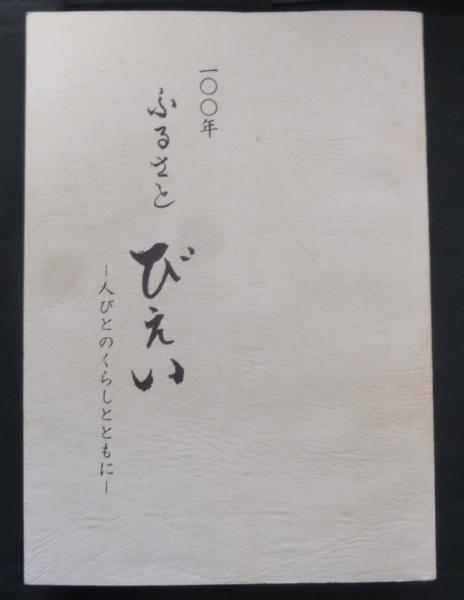 一〇〇年
ふるさと びえい
―人びとのくらしとともに―